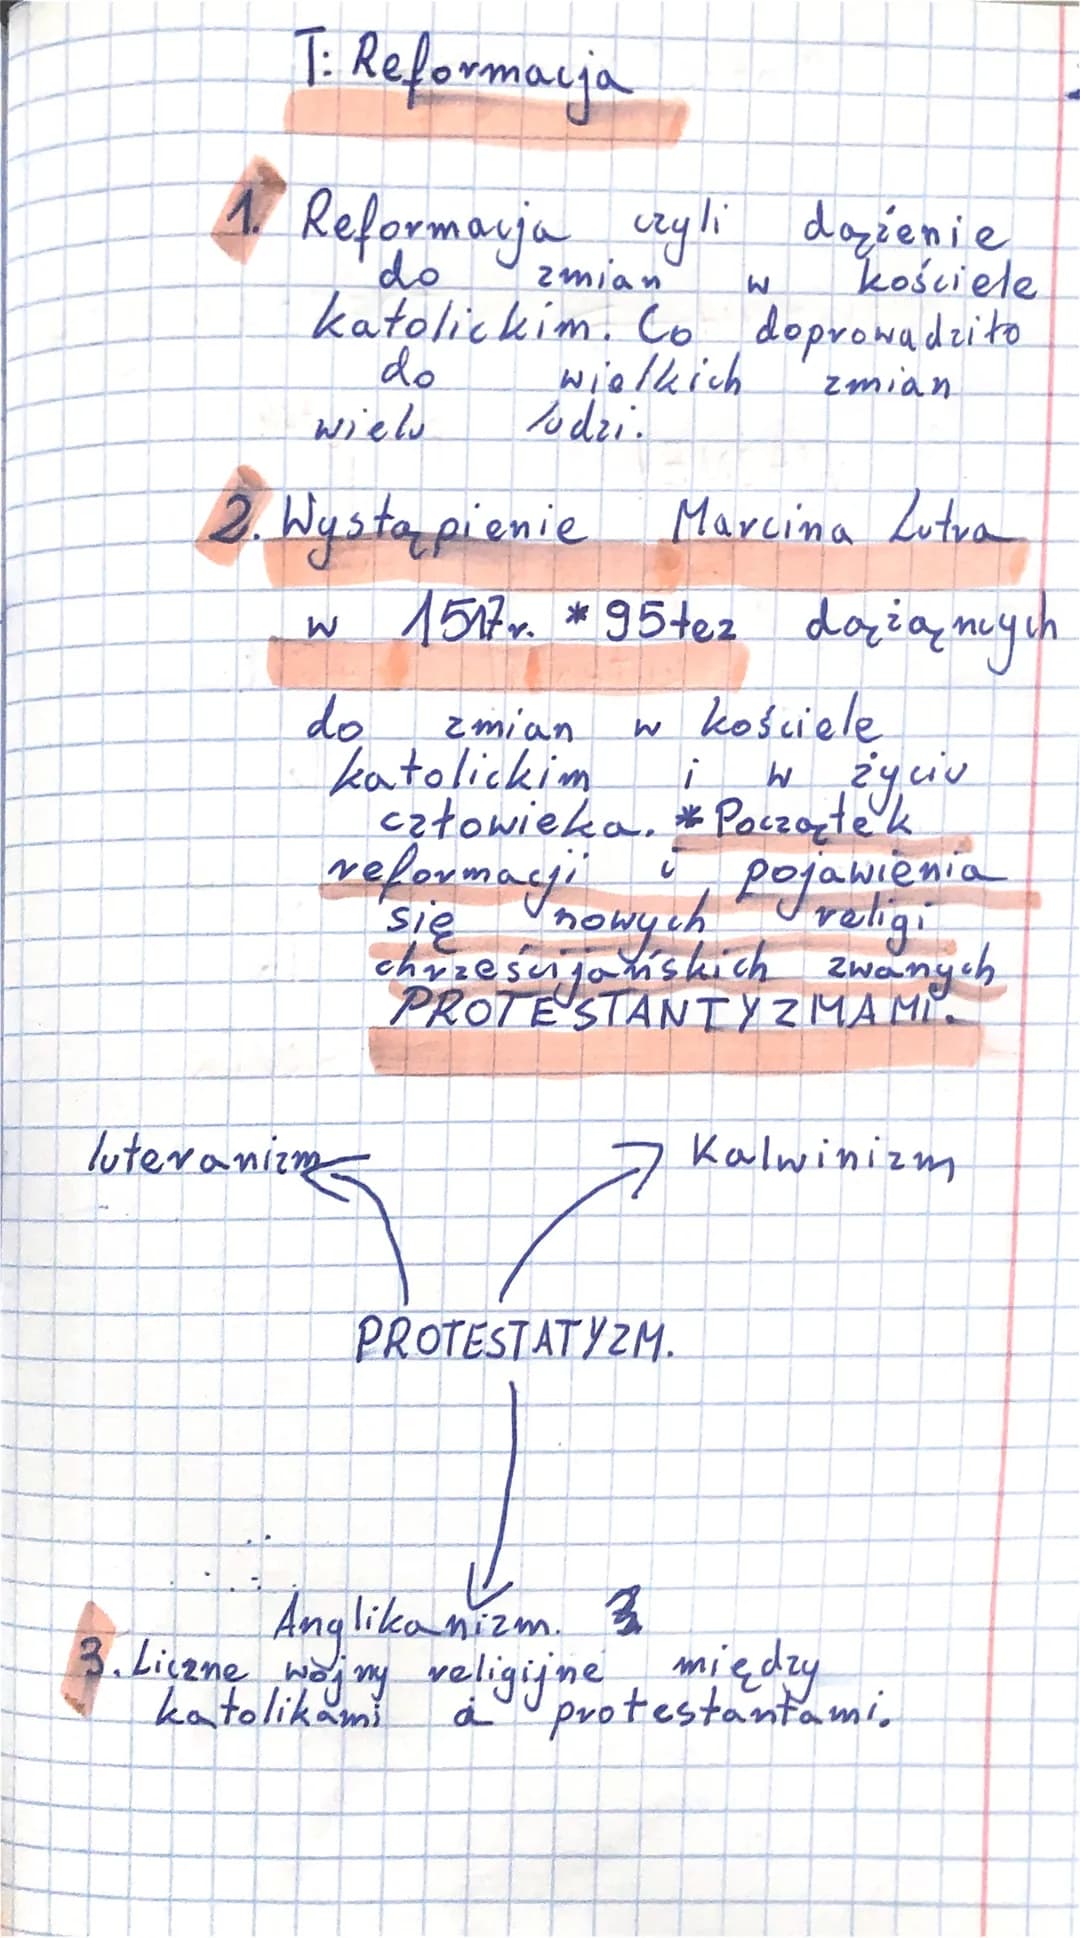 T: Reformacja
1. Reformacja czyli dążenie
do zmian w kościele
katolickim. Co doprowadziło
do wielkich zmian
wielu ludzi.
2. Wystąpienie Marcina Lutra
w 1517r. * 95 tez dążąncych
do zmian w kościele
katolickim i w życiu
człowieka. * Początek
reformacji i pojawienia
się nowych religi
chrześcijańskich zwanych
PROTESTANTYZMAMI.
luteranizm Kalwinizm
PROTESTATYZM.
Anglikanizm.
3. Liczne wojny religijne między
katolikami a protestantami.